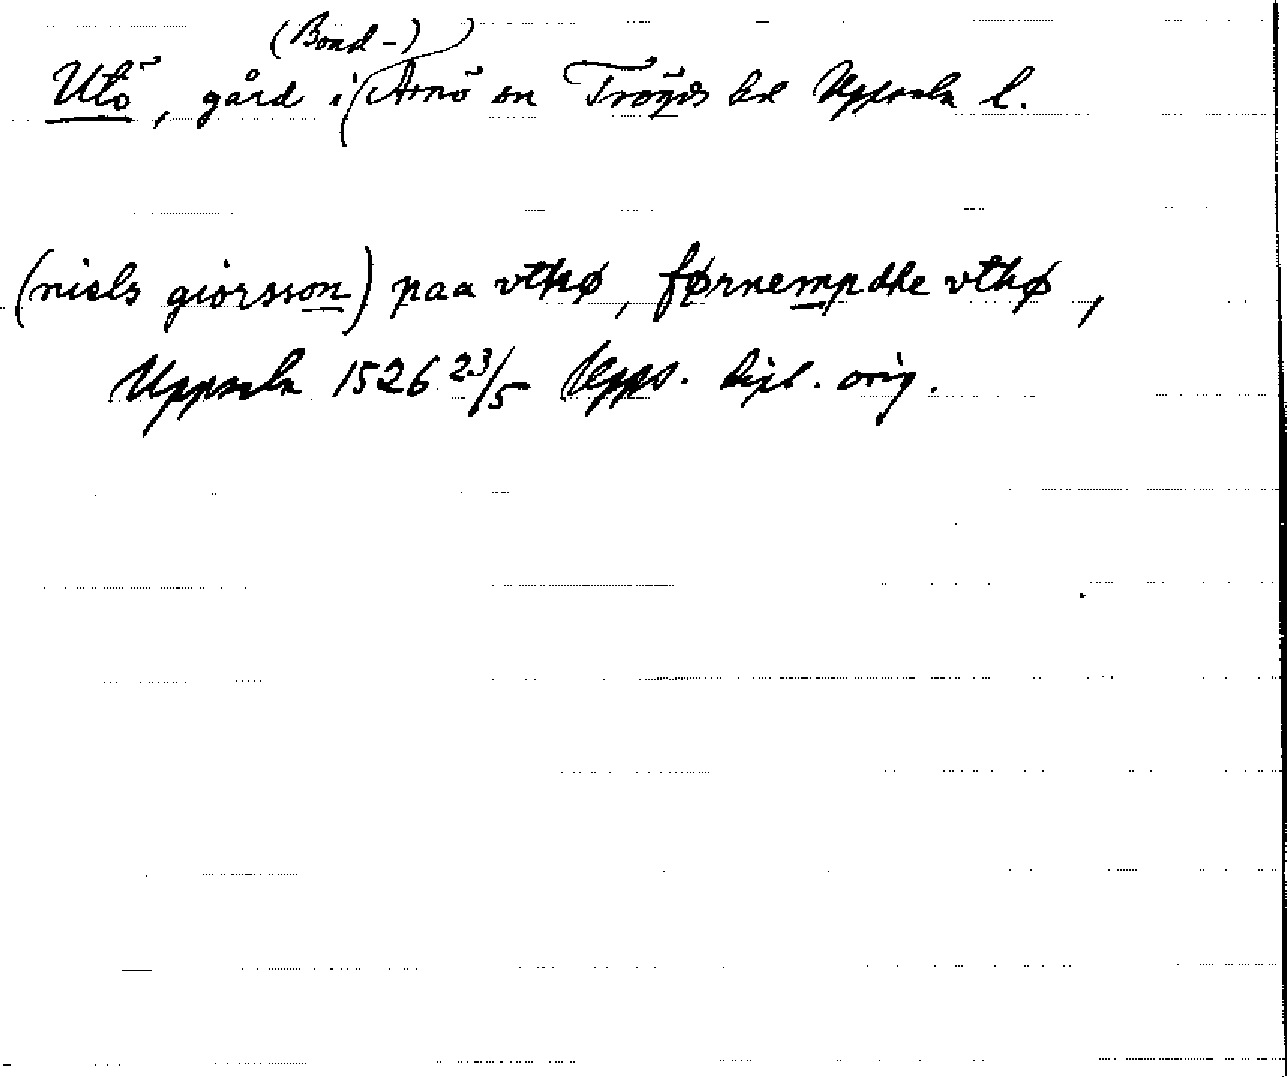 (Bond-)
Utö, gård i Arnö sn Trögds hd Uppsala l.
(niels giorsson) paa vthø, førnempdhe vthø,
Uppsala 1526 23/5 Upps. dipl. orig.